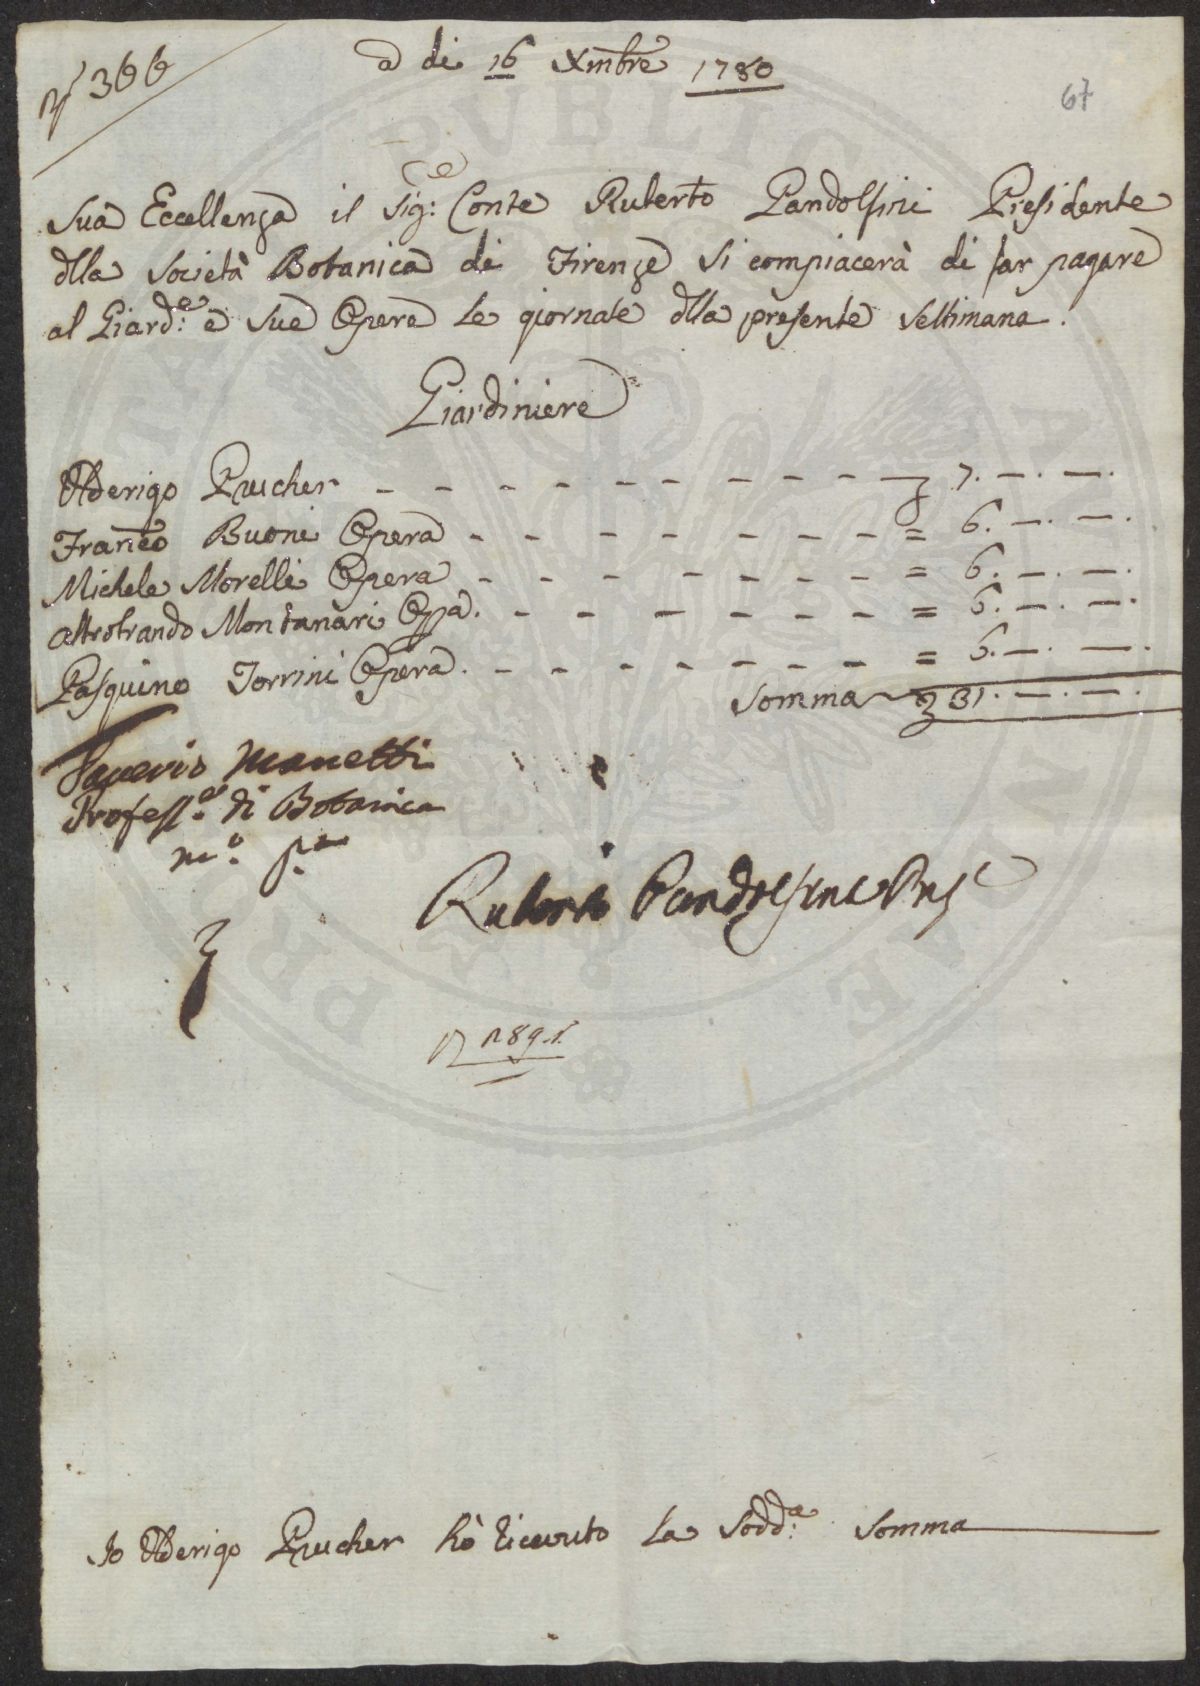 N° 366
a di 16 Xmbre 1780
67
Sua Eccellenza il Sig:re Conte Ruberto Pandolfini Presidente
dlla Società Botanica di Firenze si compiacerà di far pagare
al Giard:e e sue Opere le giornate dlla presente Settimana.
Giardiniere
Alderigo Prucher - - - - - - - - - 7. —. —.
Franco Buoni Opera - - - - - - - = 6. —. —.
Michele Morelli Opera - - - - - - - = 6. —. —.
Altobrando Montanari Oppa. - - - - - - = 6. —. —.
Pasquino Torrini Opera. - - - - - - - = 6. —. —.
Somma 31. —. —.
Saverio Manetti
Profess.e di Botanica
m.o p.a
Ruberto Pandolfini Pres
Io Alderigo Prucher hò ricevuto la Sodd:a Somma